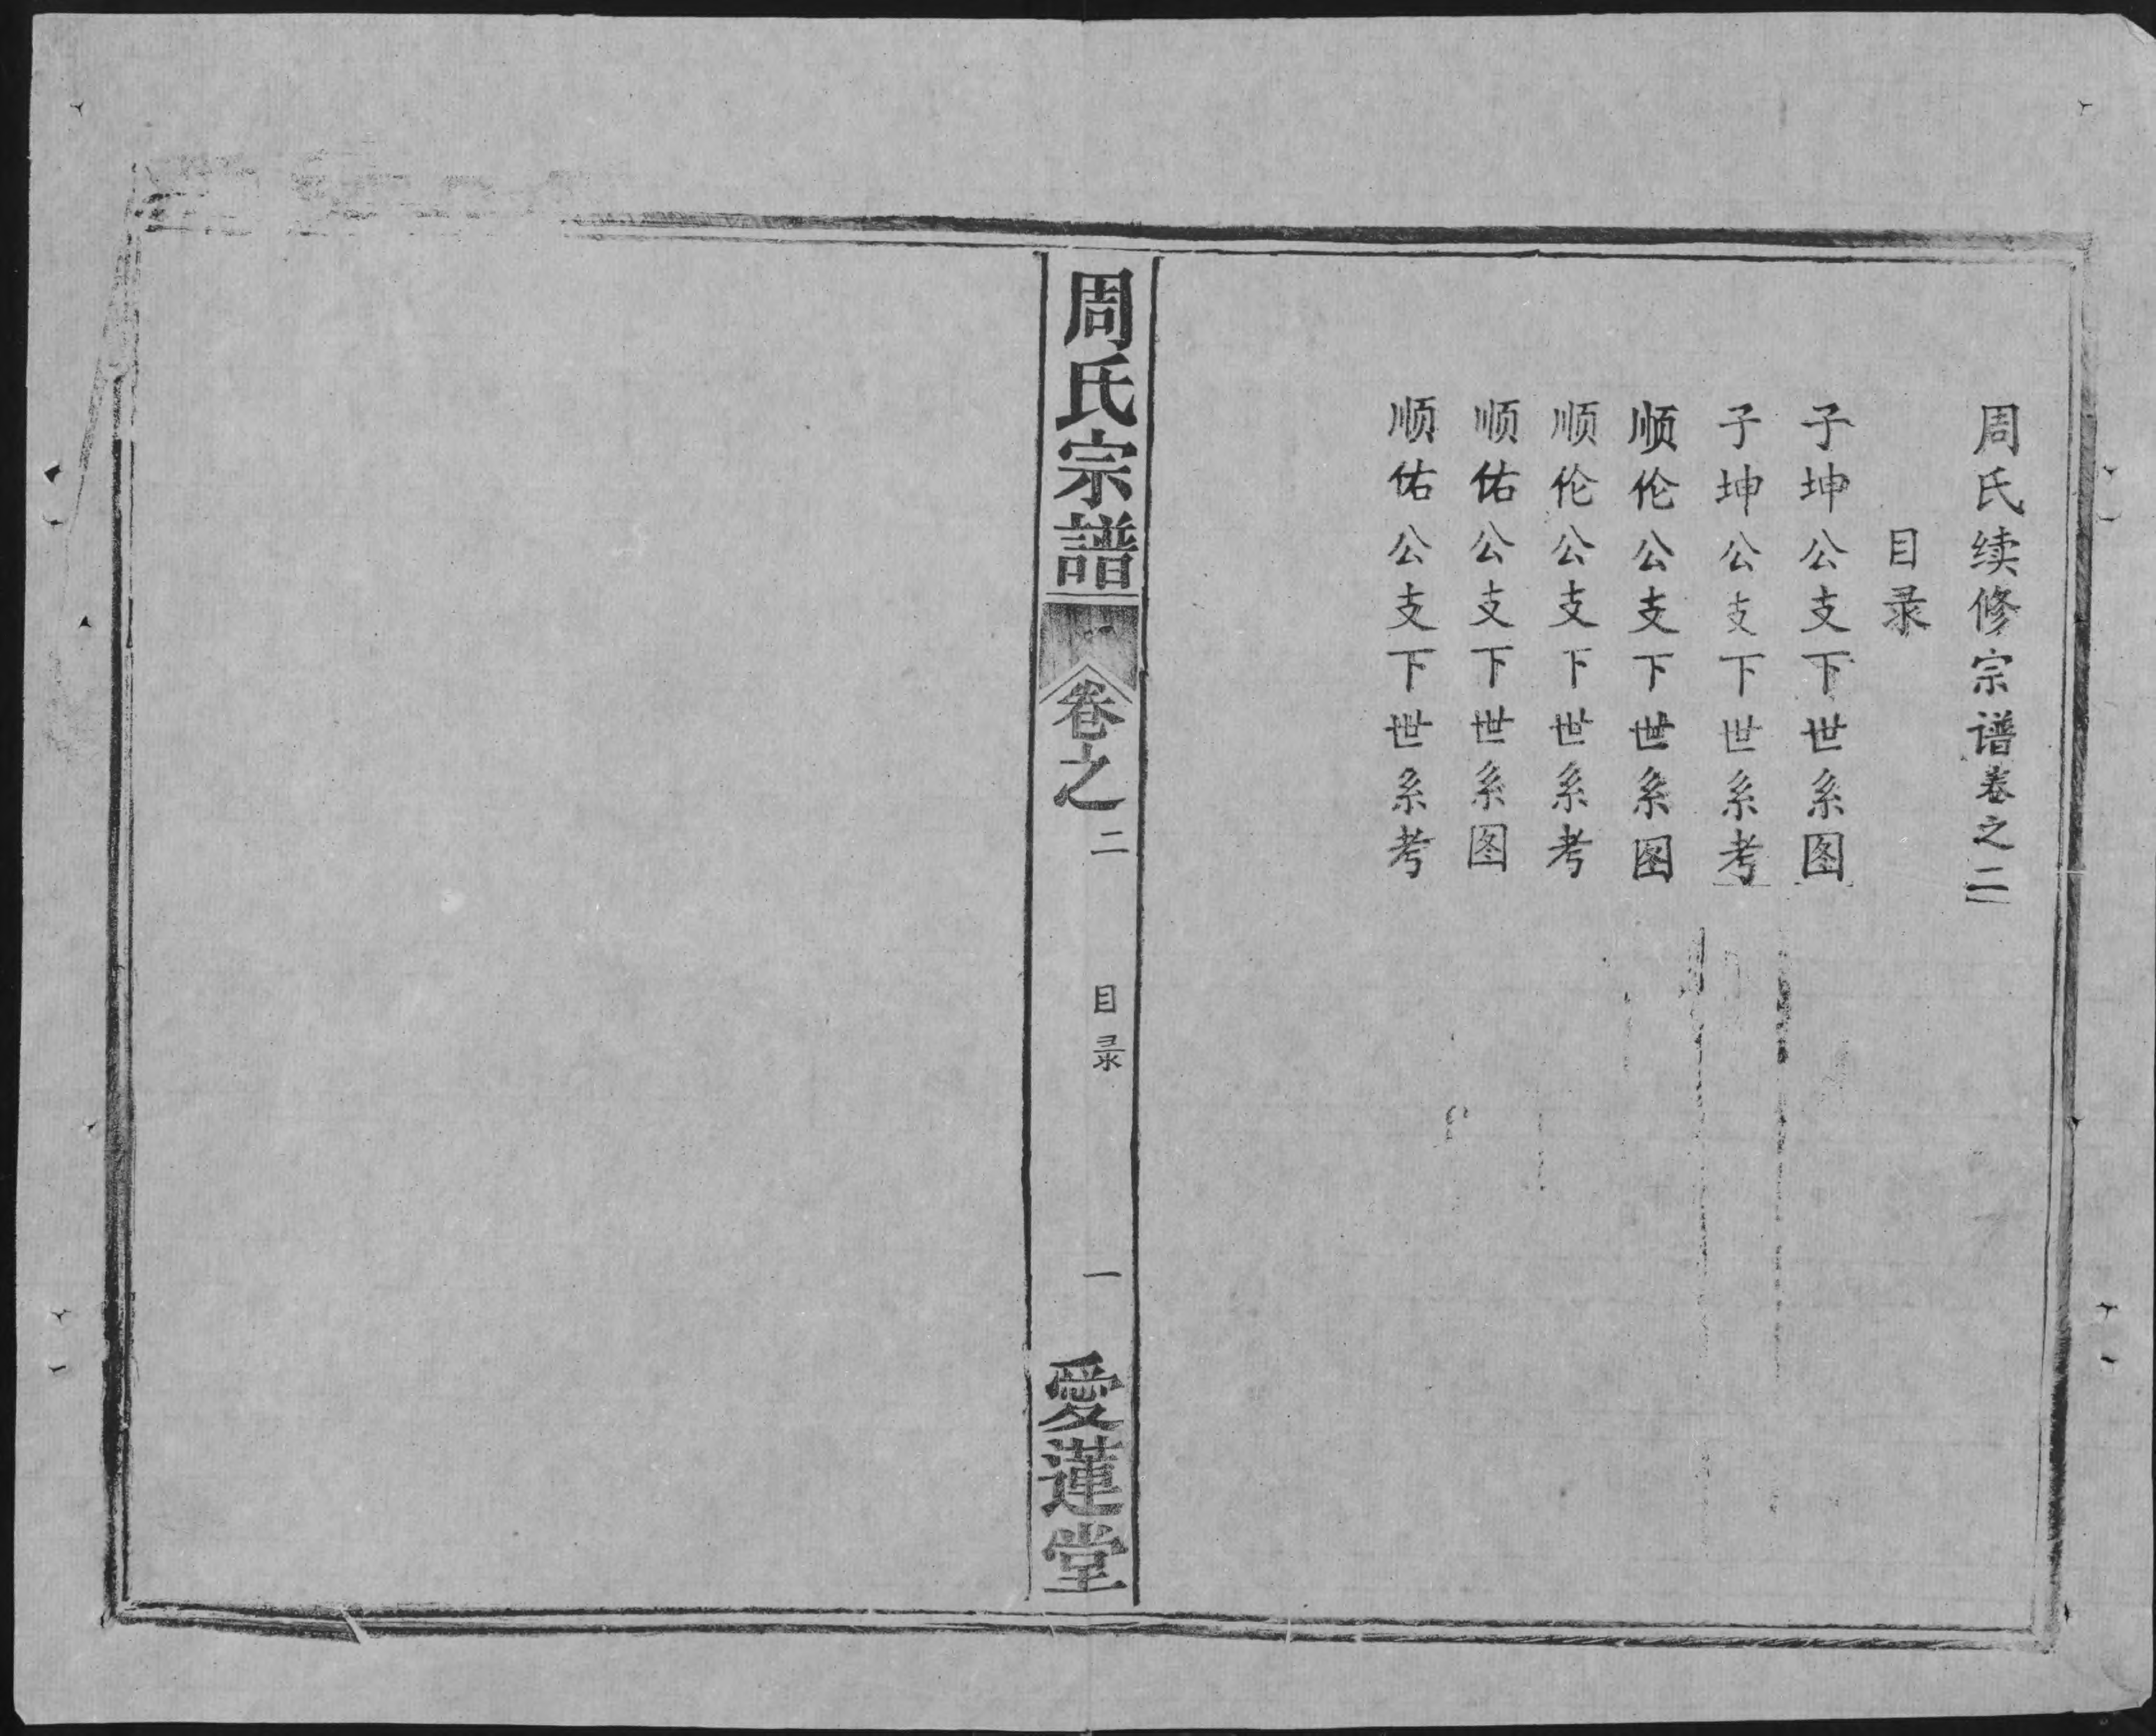 周氏续修宗谱卷之二
目录
子坤公支下世系图
子坤公支下世系考
顺伦公支下世系图
顺伦公支下世系考
顺佑公支下世系图
顺佑公支下世系考
周氏宗譜
卷之二
目录
一
愛蓮堂